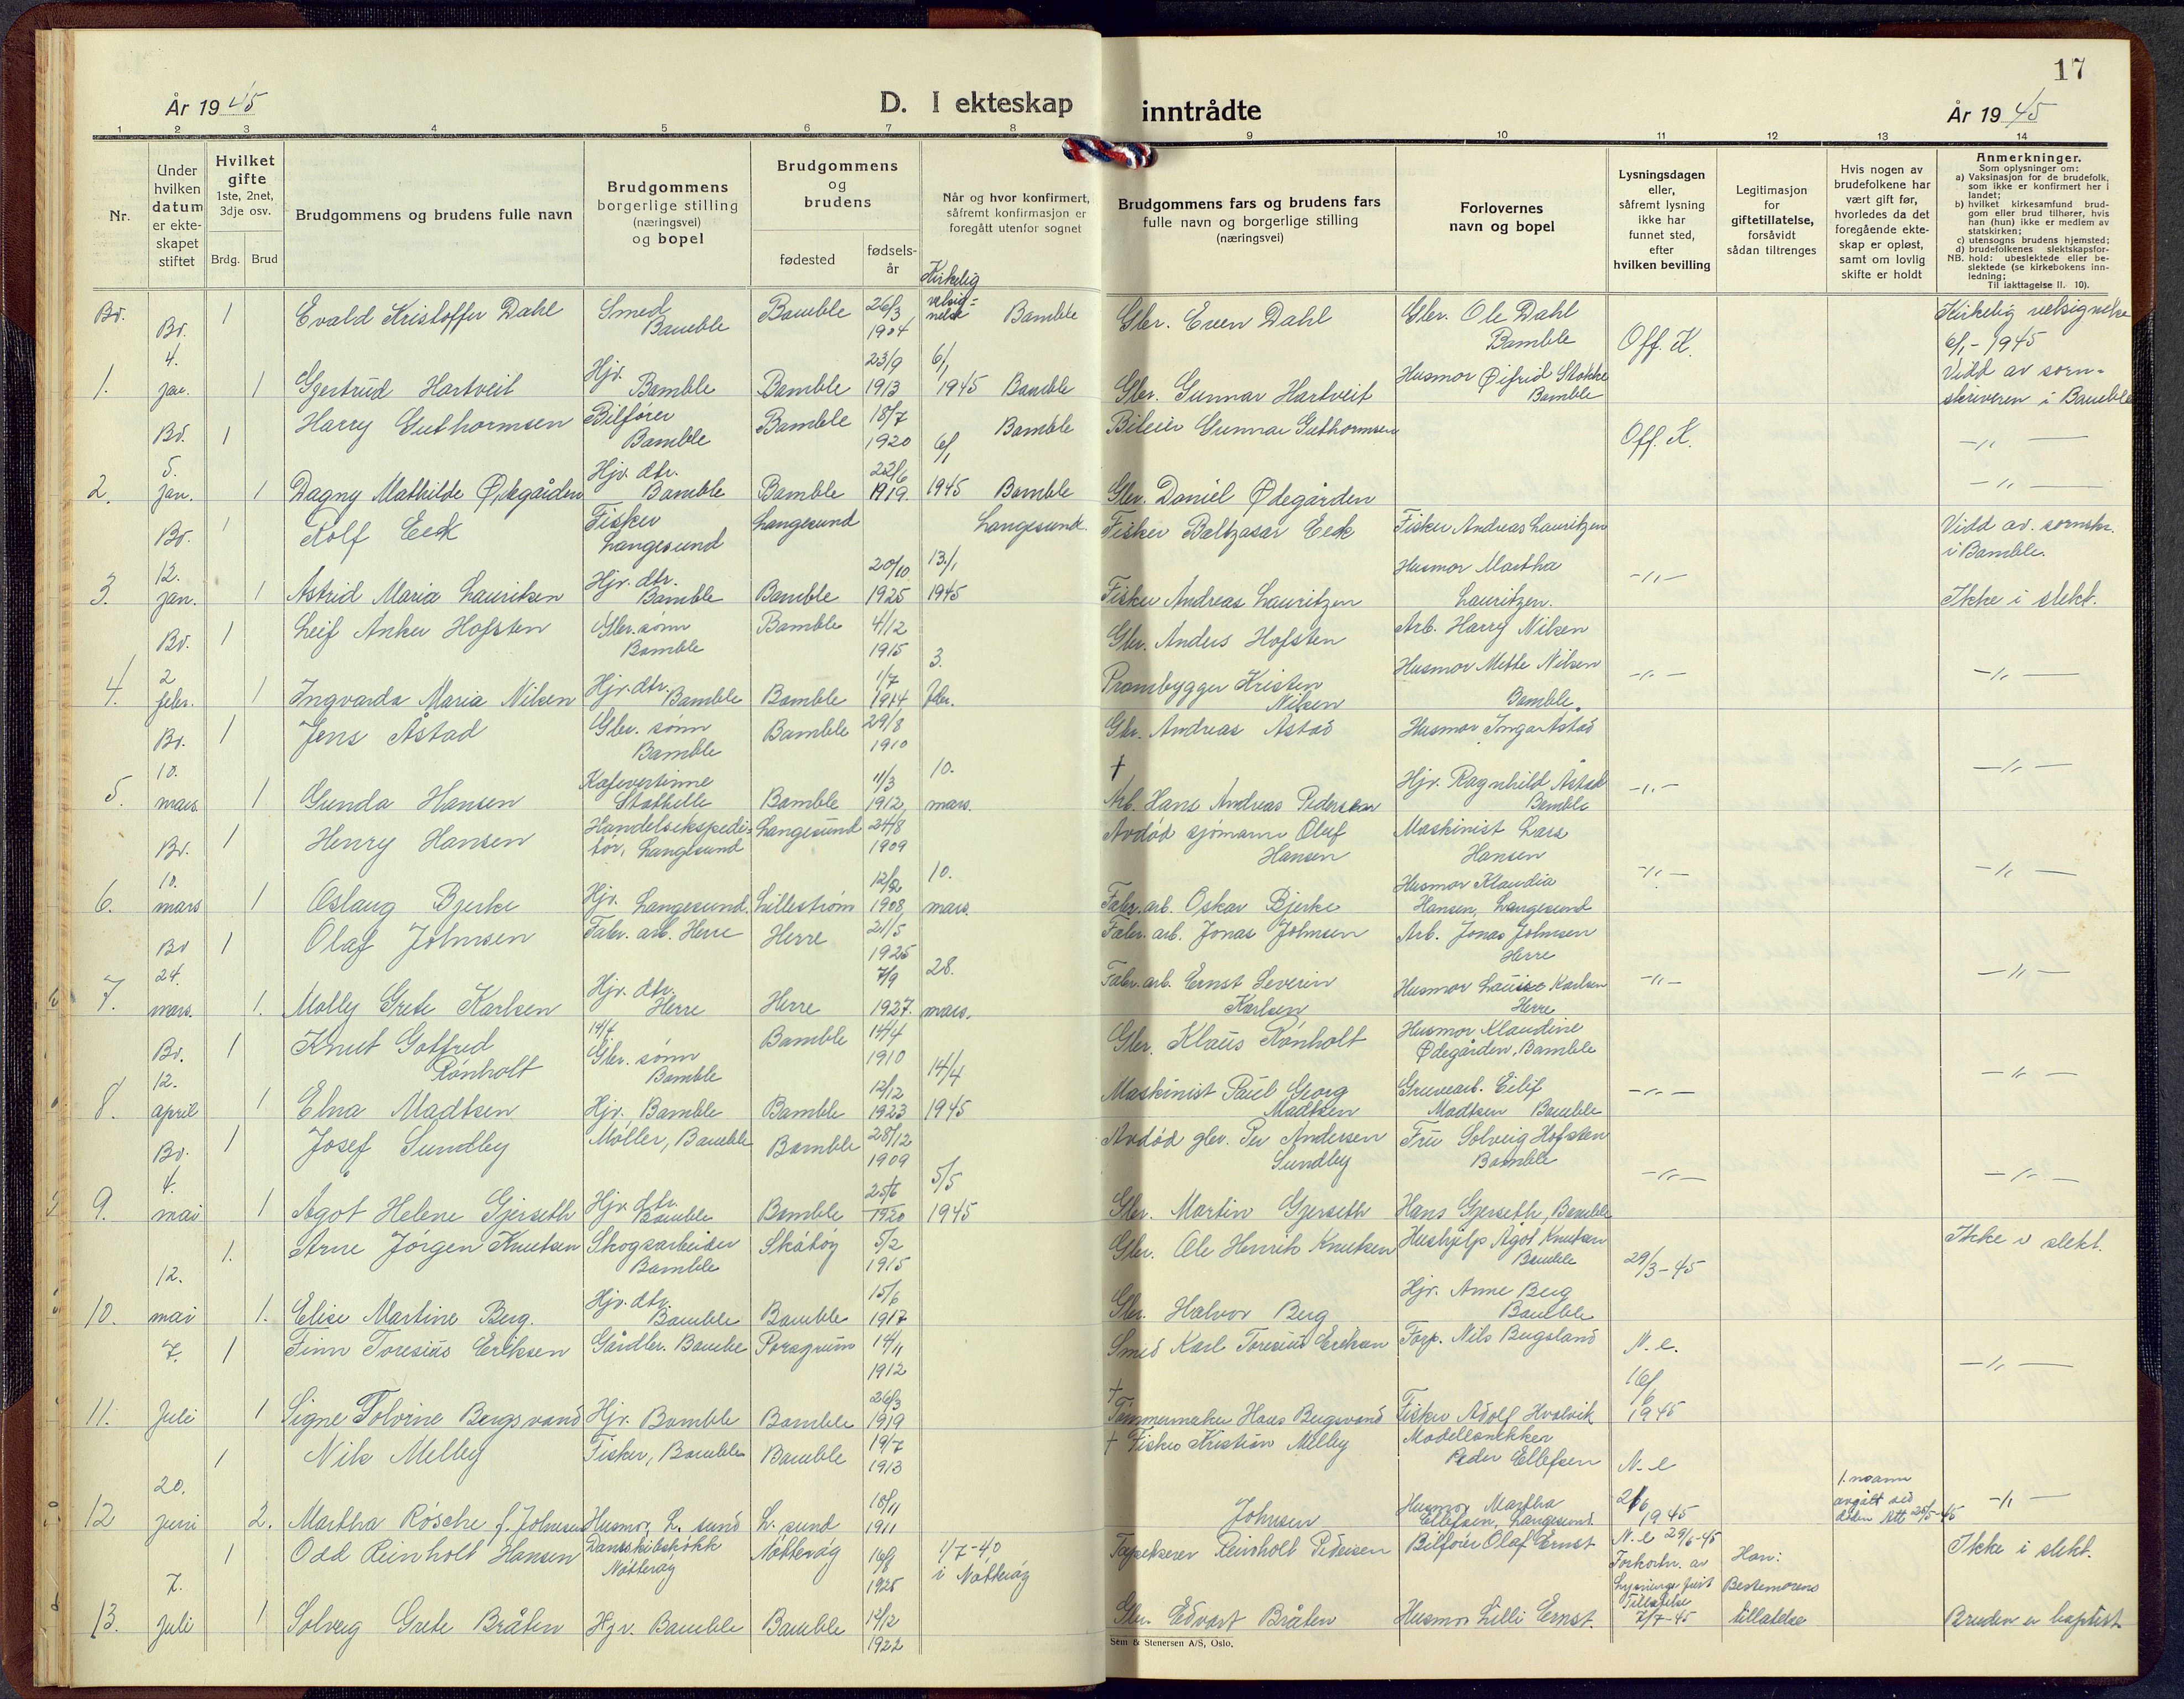 17
År 1945
D. I ekteskap inntrådte
År 1945
1 2 3 4 5 6 7 8 9 10 11 12 13 14
Nr.
Under hvilken datum er ekte-skapet stiftet
Hvilket gifte
1ste, 2net, 3dje osv.
Brdg. Brud
Brudgommens og brudens fulle navn
Brudgommens borgerlige stilling (næringsvei) og bopel
Brudgommens og brudens
fødested
fødsels-år
Når og hvor konfirmert, såfremt konfirmasjon er foregått utenfor sognet
Brudgommens fars og brudens fars fulle navn og borgerlige stilling (næringsvei)
Forlovernes navn og bopel
Lysningsdagen eller, såfremt lysning ikke har funnet sted, efter hvilken bevilling
Legitimasjon for giftetillatelse, forsåvidt sådan tiltrenges
Hvis nogen av brudefolkene har vært gift før, hvorledes da det foregående ekte-skap er opløst, samt om lovlig skifte er holdt
Anmerkninger.
Som oplysninger om:
a) Vaksinasjon for de brudefolk, som ikke er konfirmert her i landet;
b) hvilket kirkesamfund brud-gom eller brud tilhører, hvis han (hun) ikke er medlem av statskirken;
c) utensogns brudens hjemsted;
d) brudefolkenes slektskapsfor-
NB. hold: ubeslektede eller be-slektede (se kirkebokens inn-ledning;
Til iakttagelse II. 10).
Kirkelig velsig=nelse
Bv. Bv. 1 Evald Kristoffer Dahl Smed Bamble Bamble 26/3 1904 Bamble Gbr. Even Dahl Gbr. Ole Dahl Bamble Off. K. Kirkelig velsignelse 6/1-1945
1. 4. jan. 1 Gjertrud Hartveit Hjv. Bamble Bamble 23/9 1913 6/1 1945 Bamble Gbr. Gunnar Hartveit Husmor Øifrid Stokke Bamble Vidd av sorn=skriveren i Bamble
Bv. 1 Harry Guthormsen Bilfører Bamble Bamble 18/7 1920 Bamble Bileier Gunnar Guthormsen Off. K. -"-
2. 5. jan. 1 Dagny Mathilde Ødegården Hjv. dtr. Bamble Bamble 22/6 1919. 6/1 1945 Bamble Gbr. Daniel Ødegården -"-
Bv. 1 Rolf Eeck Fisker Langesund Langesund Langesund Fisker Baltzasar Eeck Fisker Andreas Lauritzen Vidd av. sornskr. i Bamble.
3. 12. jan. 1 Astrid Maria Lauritsen Hjv. dtr. Bamble Bamble 20/10 1925 13/1 1945 Fisker Andreas Lauritzen Husmor Martha Lauritzen. -"- Ikke i slekt.
Bv. 1 Leif Anker Hofsten Gbr. sønn Bamble Bamble 4/12 1915 Gbr. Anders Hofsten Arb. Harry Nilsen
4. 2 febr. 1 Ingvarda Maria Nilsen Hjv. dtr. Bamble Bamble 1/7 1914 3. febr. Prambygger Kristen Nilsen Husmor Mette Nilsen Bamble -"- -"-
Bv. 1 Jens Åstad Gbr. sønn Bamble Bamble 29/8 1910 Gbr. Andreas Åstad Husmor Inga Åstad
5. 10. mars. 1 Gunda Hansen Kafevertinne Stathelle Bamble 11/3 1912 10. mars. † Arb. Hans Andreas Pedersen Hjv. Ragnhild Åstad Bamble -"- -"-
Bv. 1 Henry Hansen Handelsekspedi=tør, Langesund Langesund 24/8 1909 Avdød sjømann Oluf Hansen Maskinist Lars Hansen
6. 10. mars 1 Oslaug Bjerke Hjv. Langesund. Lillestrøm 12/2 1908 10. mars. Fabr. arb. Oskar Bjerke Husmor Klaudia Hansen, Langesund -"- -"-
Bv 1 Olaf Johnsen Fabr. arb. Herre Herre 21/5 1925 Fabr. arb. Jonas Johnsen Arb. Jonas Johnsen Herre
7. 24. mars. 1. Molly Grete Karlsen Hjv. dtr. Herre Herre 7/9 1927. 28. mars. Fabr. arb. Ernst Severin Karlsen Husmor Karlsen Herre -"- -"-
Bv. 1 Knut Gotfred Rønholt 14/4 Gbr. sønn Bamble Bamble 14/4 1910 Gbr. Klaus Rønholt Husmor Klaudine Ødegården, Bamble
8. 12. april 1 Elna Madtsen Hjv. Bamble Bamble 12/12 1923 14/4 1945 Maskinist Paul Georg Madtsen Gruvearb. Eilif Madtsen Bamble -"- -"-
Bv. 1 Josef Sundby Møller, Bamble Bamble 28/12 1909 Avdød gbr. Per Andersen Sundby Fru Solveig Hofsten Bamble
9. 4. mai 1 Ågot Helene Gjerseth Hjv. dtr. Bamble Bamble 25/6 1920 5/5 1945 Gbr. Martin Gjerseth Hans Gjerseth, Bamble -"- -"-
1. Arne Jørgen Knutsen Skogsarbeider Bamble Skåtøy 5/2 1915 Gbr. Ole Henrik Knutsen Hushjelp Ågot Knutsen Bamble 29/3-45 Ikke i slekt.
10. 12. mai 1. Elise Martine Berg. Hjv. dtr. Bamble Bamble 15/6 1917 Gbr. Halvor Berg Hjv. Anne Berg Bamble
7. 1 Finn Toresius Eriksen Gårdbr. Bamble Porsgrunn 14/11 1912 Smed Karl Toresius Eriksen Forp. Nils Bugsland N. e. -"-
11. Juli 1 Signe Tolvine Bergsvand Hjv. Bamble Bamble 26/3 1919 † Tømmermaker Hans Bergsvand Fisker Adolf Hvalvik 16/6 1945
1 Nils Melby Fisker, Bamble Bamble 19/7 1913 † Fisker Kristian Melby Modellsnekker Peder Ellefsen N-e
12 20. juni 2. Martha Røsche f. Johnsen Husmor, L. sund L. sund 18/11 1911 Johnsen Husmor Martha Ellefsen, Langesund. 2/6 1945 1. mann avgått ved døden 25/5-45 -"-
1 Odd Reinholt Hansen Nøtterøy Nøtterøy 16/8 1925 1/7-40 i Nøtterøy Reinholt Pedersen Bilfører Olaf Ernst N. e 29/6-45 Han: Ikke i slekt.
13. 7. Juli 1 Solveig Grete Bråten Hjv. Bamble Bamble 12/12 1922 Gbr. Edvart Bråten Husmor Lilli Ernst. Tillatelse 7/7-45 Bestemorens tillatelse Bruden er baptist.
Sem & Stenersen A/S, Oslo.